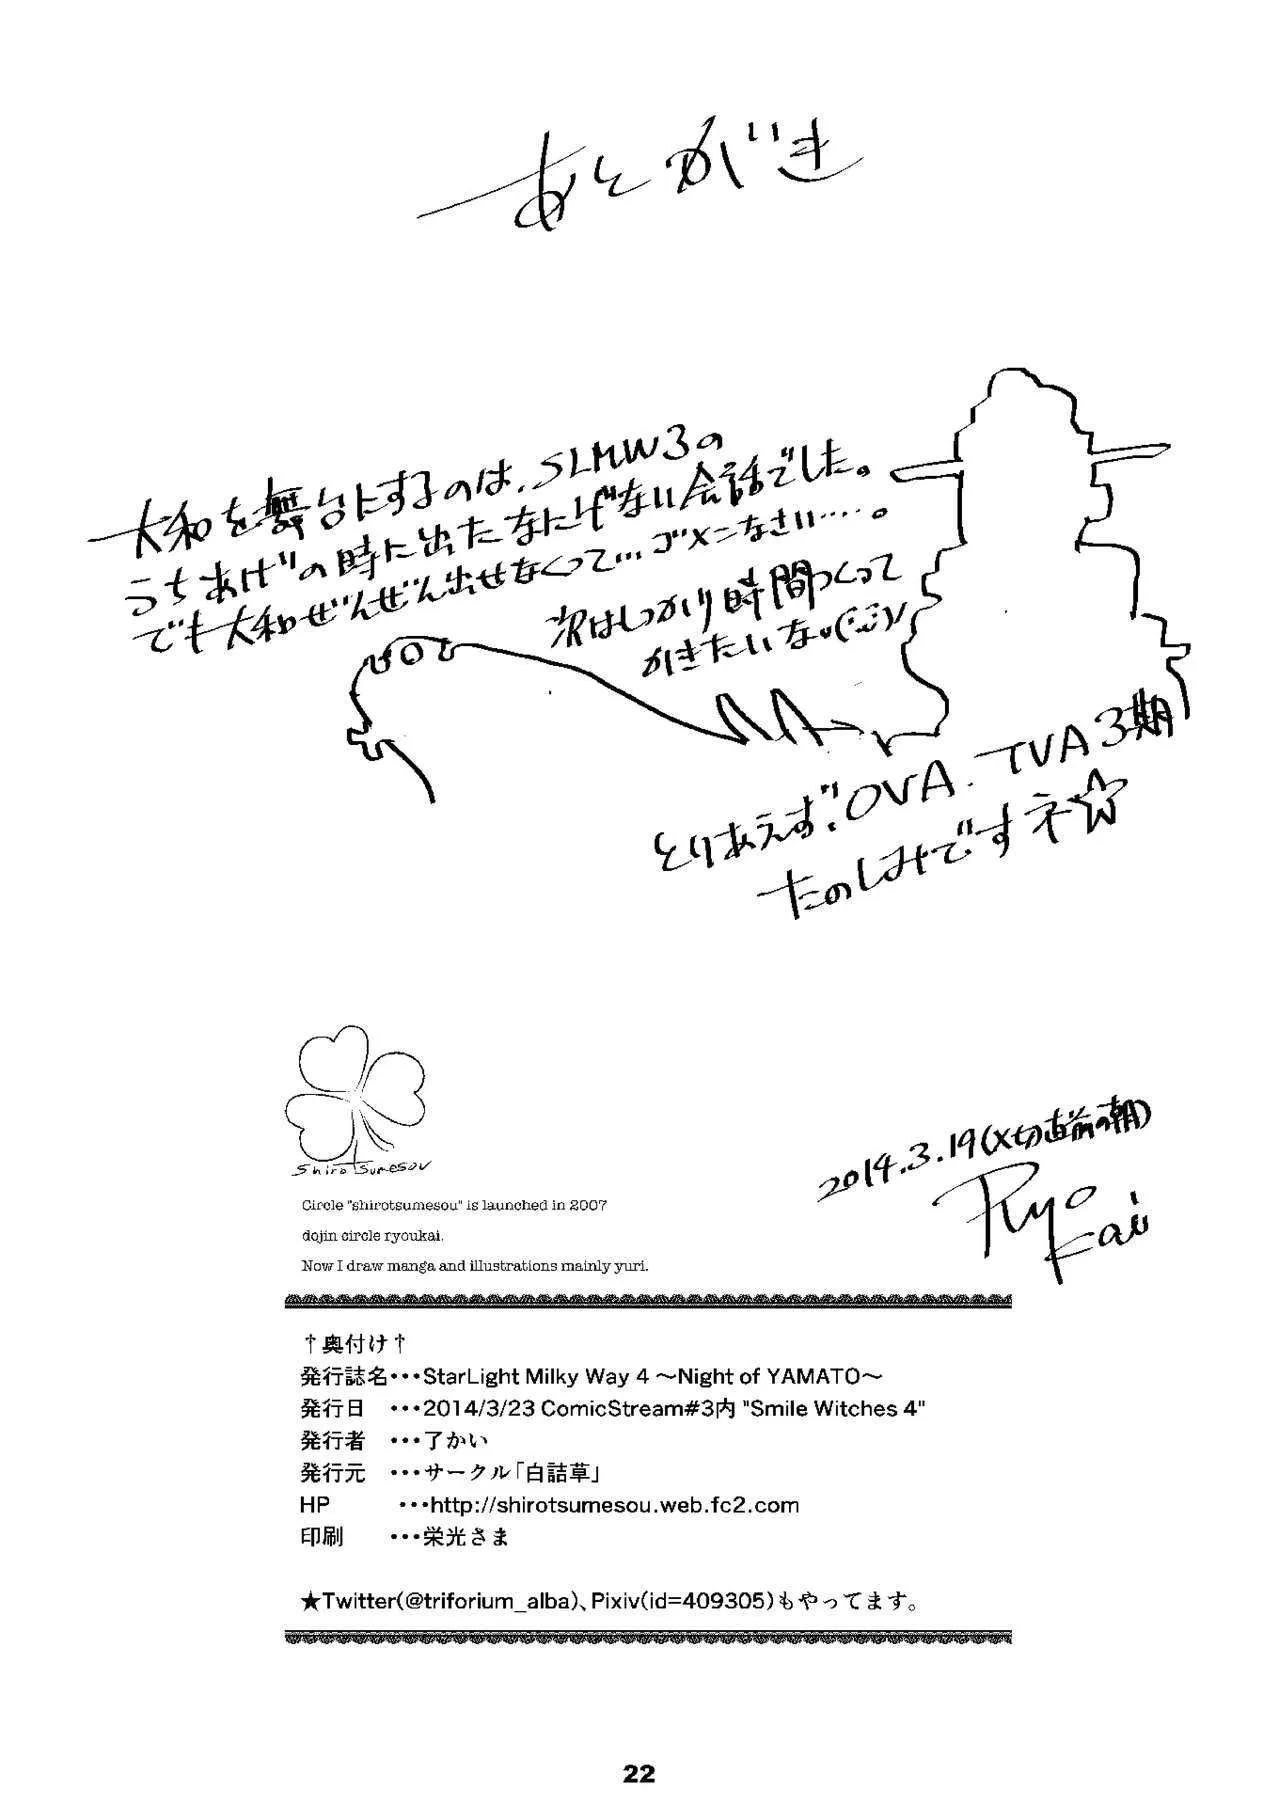 あとがき
大和を舞台にするのは、SLMW3の
うちあげの時に出たなにげない会話でした。
でも大和ぜんぜん出せなくって…ゴメンなさい…‥。
次はしっかり時間つくって
かきたいな
とりあえず、OVA、TVA3期
たのしみですネ☆
2014.3.19(〆切直前の朝)
Ryo
Kai
shirotsumesou
Circle "shirotsumesou" is launched in 2007
dojin circle ryoukai.
Now I draw manga and illustrations mainly yuri.
†奥付け†
発行誌名・・・StarLight Milky Way 4 ～Night of YAMATO～
発行日　・・・2014/3/23 ComicStream#3内 "Smile Witches 4"
発行者　・・・了かい
発行元　・・・サークル「白詰草」
HP　　　・・・http://shirotsumesou.web.fc2.com
印刷　　・・・栄光さま
★Twitter(@triforium_alba)、Pixiv(id=409305)もやってます。
22